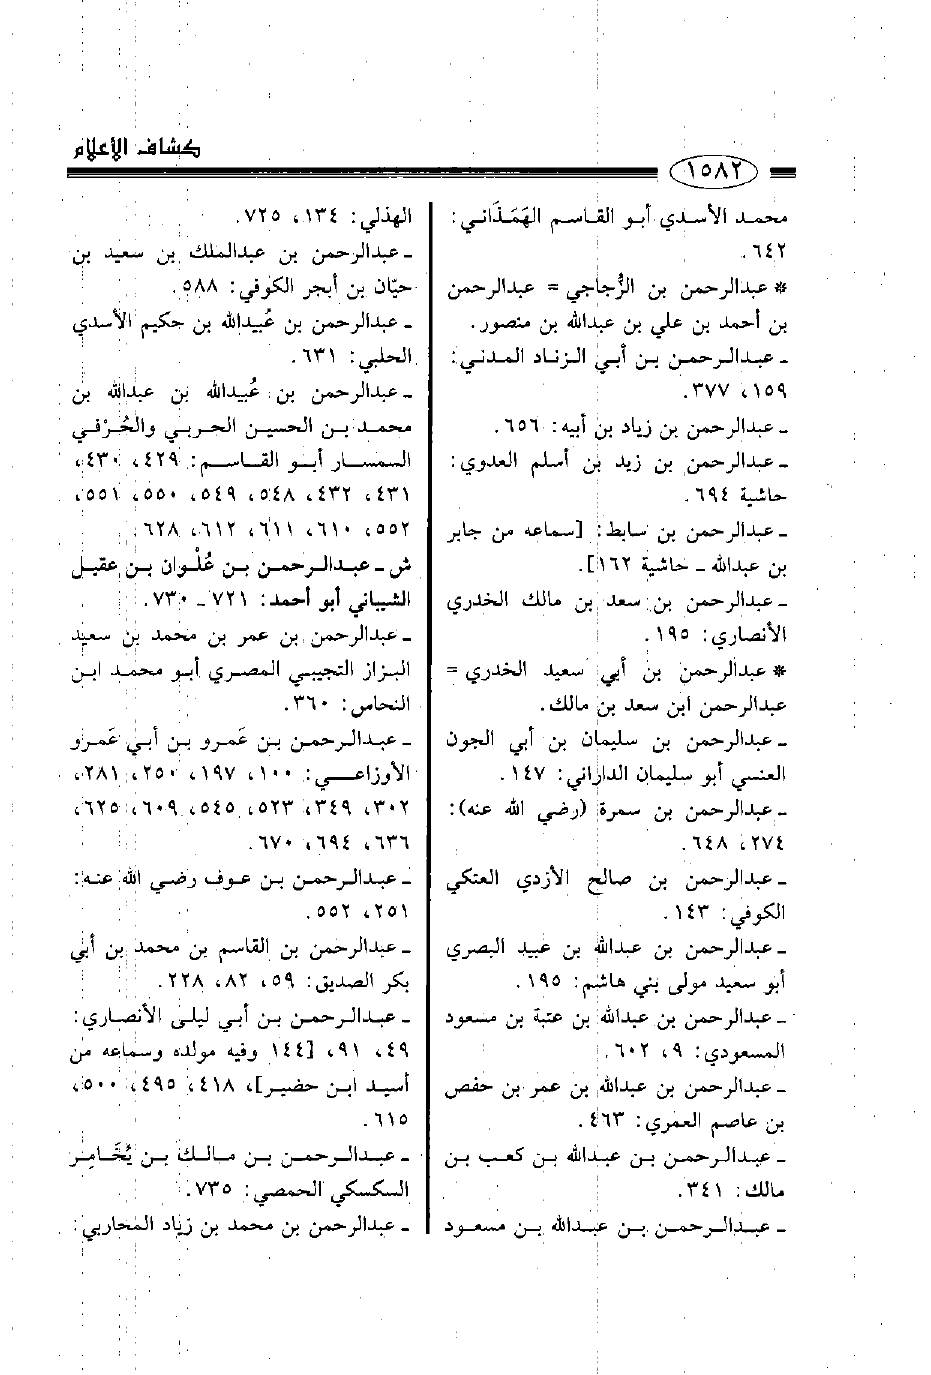 كشاف الأعلام
١٥٨٢
محمد الأسدي أبو القاسم الهَمَذَاني:
٦٤٢.
* عبدالرحمن بن الزُّجاجي = عبدالرحمن
بن أحمد بن علي بن عبدالله بن منصور.
ـ عبدالرحمن بن أبي الزناد المدني:
١٥٩، ٣٧٧.
ـ عبدالرحمن بن زياد بن أبيه: ٦٥٦.
ـ عبدالرحمن بن زيد بن أسلم العدوي:
حاشية ٦٩٤.
ـ عبدالرحمن بن سابط: [سماعه من جابر
بن عبدالله ـ حاشية ١٦٢].
ـ عبدالرحمن بن سعد بن مالك الخدري
الأنصاري: ١٩٥.
* عبدالرحمن بن أبي سعيد الخدري =
عبدالرحمن ابن سعد بن مالك.
ـ عبدالرحمن بن سليمان بن أبي الجون
العنسي أبو سليمان الداراني: ١٤٧.
ـ عبدالرحمن بن سمرة (رضي الله عنه):
٢٧٤، ٦٤٨.
ـ عبدالرحمن بن صالح الأزدي العتكي
الكوفي: ١٤٣.
ـ عبدالرحمن بن عبدالله بن عبيد البصري
أبو سعيد مولى بني هاشم: ١٩٥.
ـ عبدالرحمن بن عبدالله بن عتبة بن مسعود
المسعودي: ٩، ٦٠٢.
ـ عبدالرحمن بن عبدالله بن عمر بن حفص
بن عاصم العمري: ٤٦٣.
ـ عبدالرحمن بن عبدالله بن كعب بن
مالك: ٣٤١.
ـ عبدالرحمن بن عبدالله بن مسعود
الهذلي: ١٣٤، ٧٢٥.
ـ عبدالرحمن بن عبدالملك بن سعيد بن
حيّان بن أبجر الكوفي: ٥٨٨.
ـ عبدالرحمن بن عُبيدالله بن حكيم الأسدي
الحلبي: ٦٣١.
ـ عبدالرحمن بن عُبيدالله بن عبدالله بن
محمد بن الحسين الحربي والحُرْفي
السمسار أبو القاسم: ٤٢٩، ٤٣٠،
٤٣١، ٤٣٢، ٥٤٨، ٥٤٩، ٥٥٠، ٥٥١،
٥٥٢، ٦١٠، ٦١١، ٦١٢، ٦٢٨.
ش ـ عبدالرحمن بن عُلْوان بن عقيل
الشيباني أبو أحمد: ٧٢١ ـ ٧٣٠.
ـ عبدالرحمن بن عمر بن محمد بن سعيد
البزاز التجيبي المصري أبو محمد ابن
النحاس: ٣٦٠.
ـ عبدالرحمن بن عَمرو بن أبي عَمرو
الأوزاعي: ١٠٠، ١٩٧، ٢٥٠، ٢٨١،
٣٠٢، ٣٤٩، ٥٢٣، ٥٤٥، ٦٠٩، ٦٢٥،
٦٣٦، ٦٩٤، ٦٧٠.
ـ عبدالرحمن بن عوف رضي الله عنه:
٢٥١، ٥٥٢.
ـ عبدالرحمن بن القاسم بن محمد بن أبي
بكر الصديق: ٥٩، ٨٢، ٢٢٨.
ـ عبدالرحمن بن أبي ليلى الأنصاري:
٤٩، ٩١، [١٤٤ وفيه مولده وسماعه من
أسيد ابن حضير]، ٤١٨، ٤٩٥، ٥٠٠،
٦١٥.
ـ عبدالرحمن بن مالك بن يُخَامِر
السكسكي الحمصي: ٧٣٥.
ـ عبدالرحمن بن محمد بن زياد المحاربي: